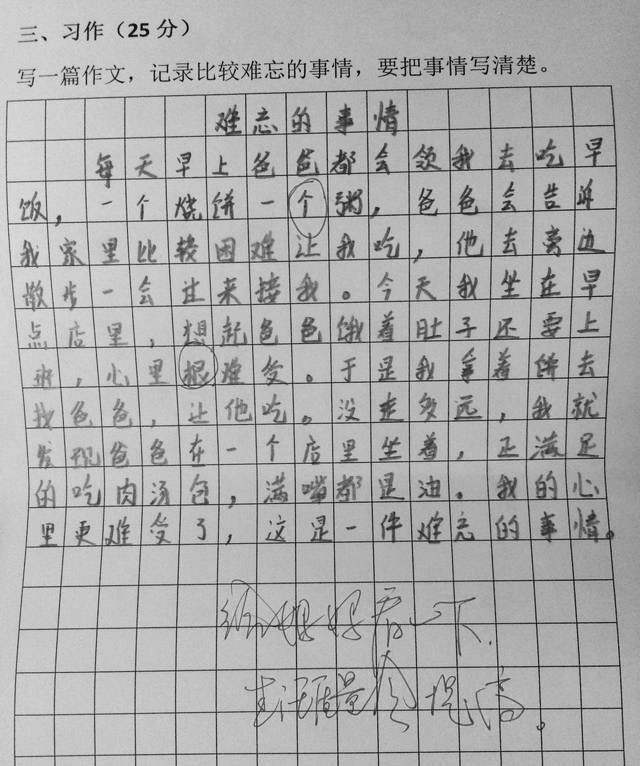 三、习作（25 分）
写一篇作文，记录比较难忘的事情，要把事情写清楚。
难忘的事情
每天早上爸爸都会领我去吃早
饭，一个烧饼一个粥，爸爸会告诉
我家里比较困难让我吃，他去旁边
散步一会过来接我。今天我坐在早
点店里，想起爸爸饿着肚子还要上
班，心里根难受。于是我拿着饼去
找爸爸，让他吃。没走多远，我就
发现爸爸在一个店里坐着，正满足
的吃肉汤包，满嘴都是油。我的心
里更难受了，这是一件难忘的事情。
给妈妈看一下.
生活质量会提高。